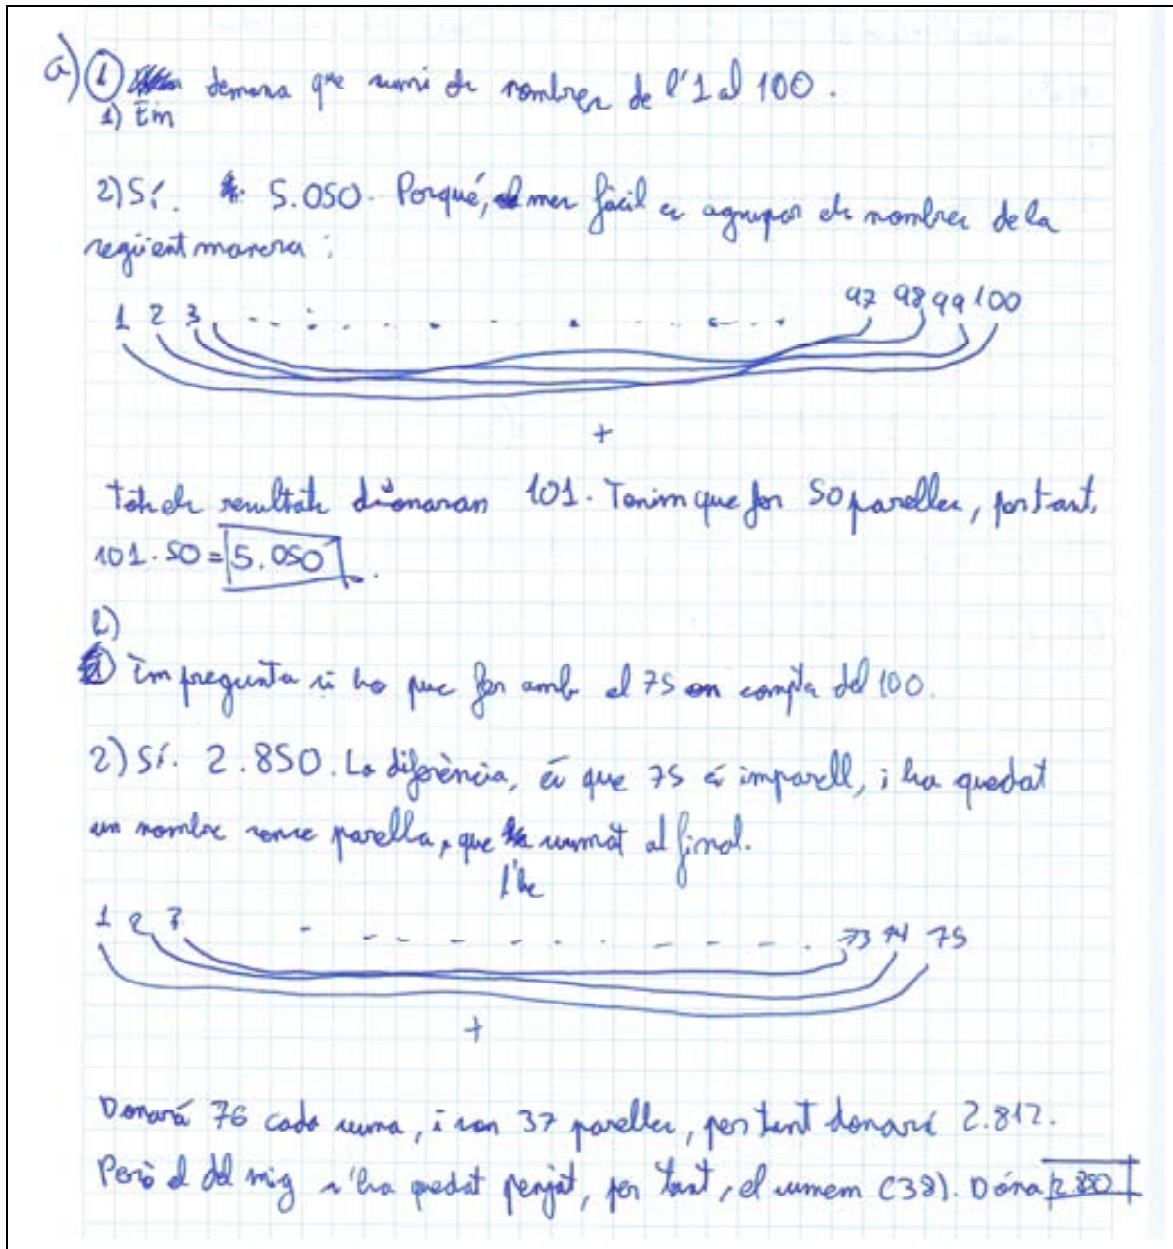 a) 1 demana que sumi els nombres de l'1 al 100.
1) Em
2) Sí. 5.050. Porqué, mes fàcil es agrupar els nombres de la
següent manera:
1 2 3 . . . . . . . . . . 97 98 99 100
+
Tots els resultats donaran 101. Tenim que fer 50 parelles, per tant,
101·50 = 5.050.
b)
1) Em pregunta si ho puc fer amb el 75 en compta del 100.
2) Sí. 2.850. La diferència, és que 75 és imparell, i ha quedat
un nombre sense parella, que sumat al final.
l'he
1 2 3 - - - - - - - - - . 73 74 75
+
Donará 76 cada suma, i son 37 parelles, per tant donará 2.812.
Però el del mig s'ha quedat penjat, per tant, el sumem (38). Dóna 2.850